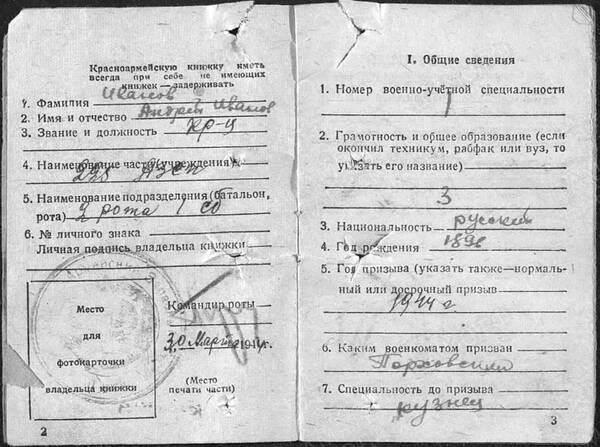 Красноармейскую книжку иметь
всегда при себе. не имеющих
книжек — задерживать
1. Фамилия
2. Имя и отчество Андрей Иванов
3. Звание и должность кр-ц
4. Наименование части (учреждения)
5. Наименование подразделения (батальон,
рота) 2 рота 1 сб
6. № личного знака
Личная подпись владельца книжки
Командир роты
30 Март 1944 г.
Место
для
фотокарточки
владельца книжки
(Место
печати части)
2
I. Общие сведения
1. Номер военно-учётной специальности
1
2. Грамотность и общее образование (если
окончил техникум, рабфак или вуз, то
указать его название)
3
3. Национальность русский
4. Год рождения
5. Год призыва (указать также—нормаль-
ный или досрочный призыв
1944 г
6. Каким военкоматом призван
Порховским
7. Специальность до призыва
кузнец
3